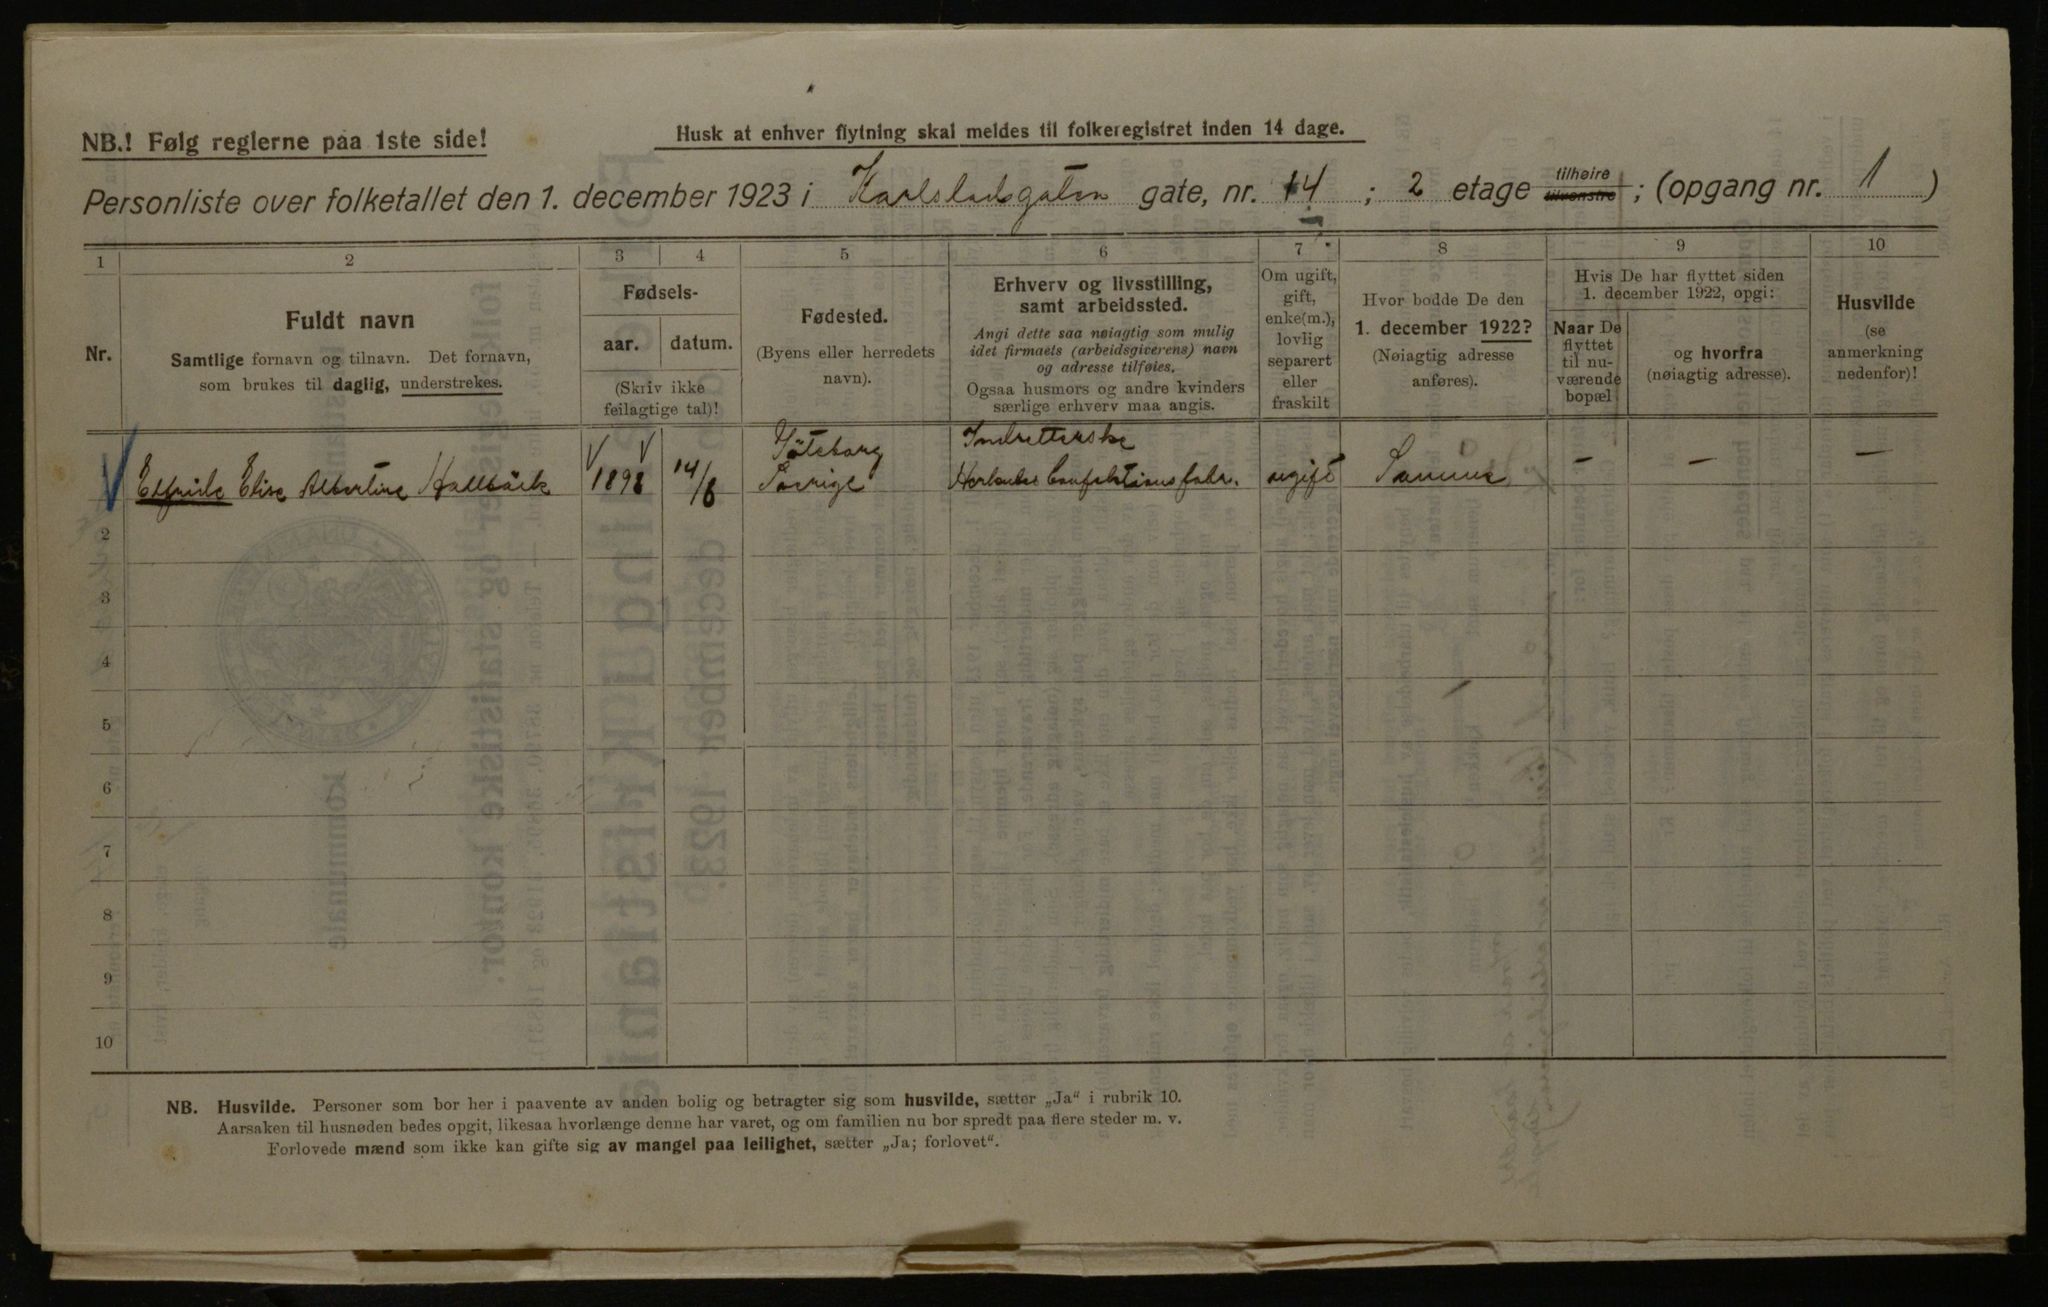 NB.! Følg reglerne paa 1ste side!
Husk at enhver flytning skal meldes til folkeregistret inden 14 dage.
Personliste over folketallet den 1. december 1923 i Karlstadsgaten gate, nr. 14 ; 2 etage tilhøire tilvenstre ; (opgang nr. 1 )
1 2 3 4 5 6 7 8 9 10
Nr.
Fuldt navn
Samtlige fornavn og tilnavn. Det fornavn,
som brukes til daglig, understrekes.
Fødsels-
aar. datum.
(Skriv ikke
feilagtige tal)!
Fødested.
(Byens eller herredets
navn).
Erhverv og livsstilling,
samt arbeidssted.
Angi dette saa nøiagtig som mulig
idet firmaets (arbeidsgiverens) navn
og adresse tilføies.
Ogsaa husmors og andre kvinders
særlige erhverv maa angis.
Om ugift,
gift,
enke(m.),
lovlig
separert
eller
fraskilt
Hvor bodde De den
1. december 1922?
(Nøiagtig adresse
anføres).
Hvis De har flyttet siden
1. december 1922, opgi:
Naar De
flyttet
til nu-
værende
bopæl
og hvorfra
(nøiagtig adresse).
Husvilde
(se
anmerkning
nedenfor)!
Göteborg
Elfride Elise Albertine Hallbäck 1898 14/8 Sverige Confektionsfabr. ugift Samme — — —
2
3
4
5
6
7
8
9
10
NB. Husvilde. Personer som bor her i paavente av anden bolig og betragter sig som husvilde, sætter „Ja" i rubrik 10.
Aarsaken til husnøden bedes opgit, likesaa hvorlænge denne har varet, og om familien nu bor spredt paa flere steder m. v.
Forlovede mænd som ikke kan gifte sig av mangel paa leilighet, sætter „Ja; forlovet".